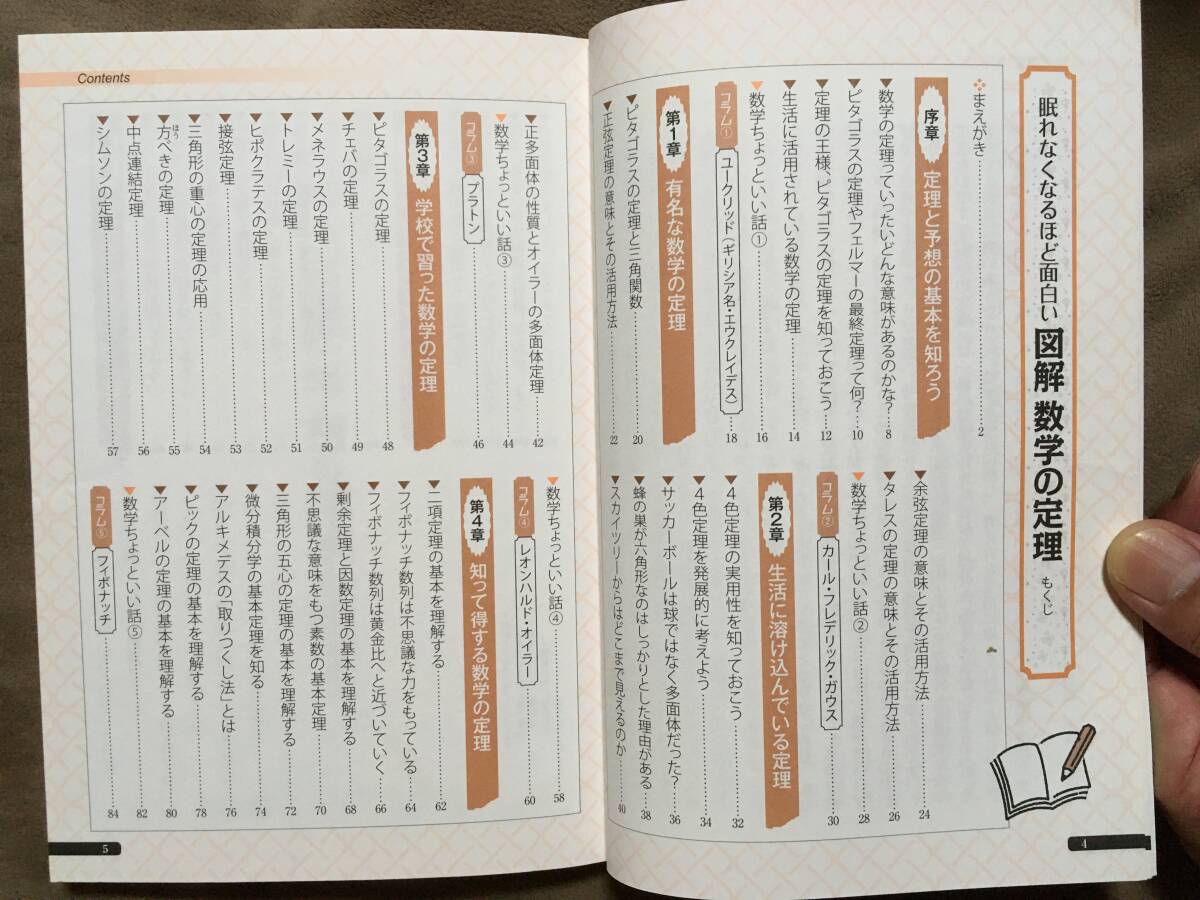 眠れなくなるほど面白い 図解 数学の定理 もくじ
まえがき……2
序章 定理と予想の基本を知ろう
▼数学の定理っていったいどんな意味があるのかな?……8
▼ピタゴラスの定理やフェルマーの最終定理って何?……10
▼定理の王様、ピタゴラスの定理を知っておこう……12
▼生活に活用されている数学の定理……14
▼数学ちょっといい話①……16
コラム① ユークリッド(ギリシア名・エウクレイデス)……18
第1章 有名な数学の定理
▼ピタゴラスの定理と三角関数……20
▼正弦定理の意味とその活用方法……22
▼余弦定理の意味とその活用方法……24
▼タレスの定理の意味とその活用方法……26
▼数学ちょっといい話②……28
コラム② カール・フレデリック・ガウス……30
第2章 生活に溶け込んでいる定理
▼4色定理の実用性を知っておこう……32
▼4色定理を発展的に考えよう……34
▼サッカーボールは球ではなく多面体だった?……36
▼蜂の巣が六角形なのはしっかりとした理由がある……38
▼スカイツリーからはどこまで見えるのか……40
4
Contents
▼正多面体の性質とオイラーの多面体定理……42
▼数学ちょっといい話③……44
コラム③ プラトン……46
第3章 学校で習った数学の定理
▼ピタゴラスの定理……48
▼チェバの定理……49
▼メネラウスの定理……50
▼トレミーの定理……51
▼ヒポクラテスの定理……52
▼接弦定理……53
▼三角形の重心の定理の応用……54
▼方べきの定理……55
ほう
▼中点連結定理……56
▼シムソンの定理……57
▼数学ちょっといい話④……58
コラム④ レオンハルド・オイラー……60
第4章 知って得する数学の定理
▼二項定理の基本を理解する……62
▼フィボナッチ数列は不思議な力をもっている……64
▼フィボナッチ数列は黄金比へと近づいていく……66
▼剰余定理と因数定理の基本を理解する……68
▼不思議な意味をもつ素数の基本定理……70
▼三角形の五心の定理の基本を理解する……72
▼微分積分学の基本定理を知る……74
▼アルキメデスの「取りつくし法」とは……76
▼ピックの定理の基本を理解する……78
▼アーベルの定理の基本を理解する……80
▼数学ちょっといい話⑤……82
コラム⑤ フィボナッチ……84
5